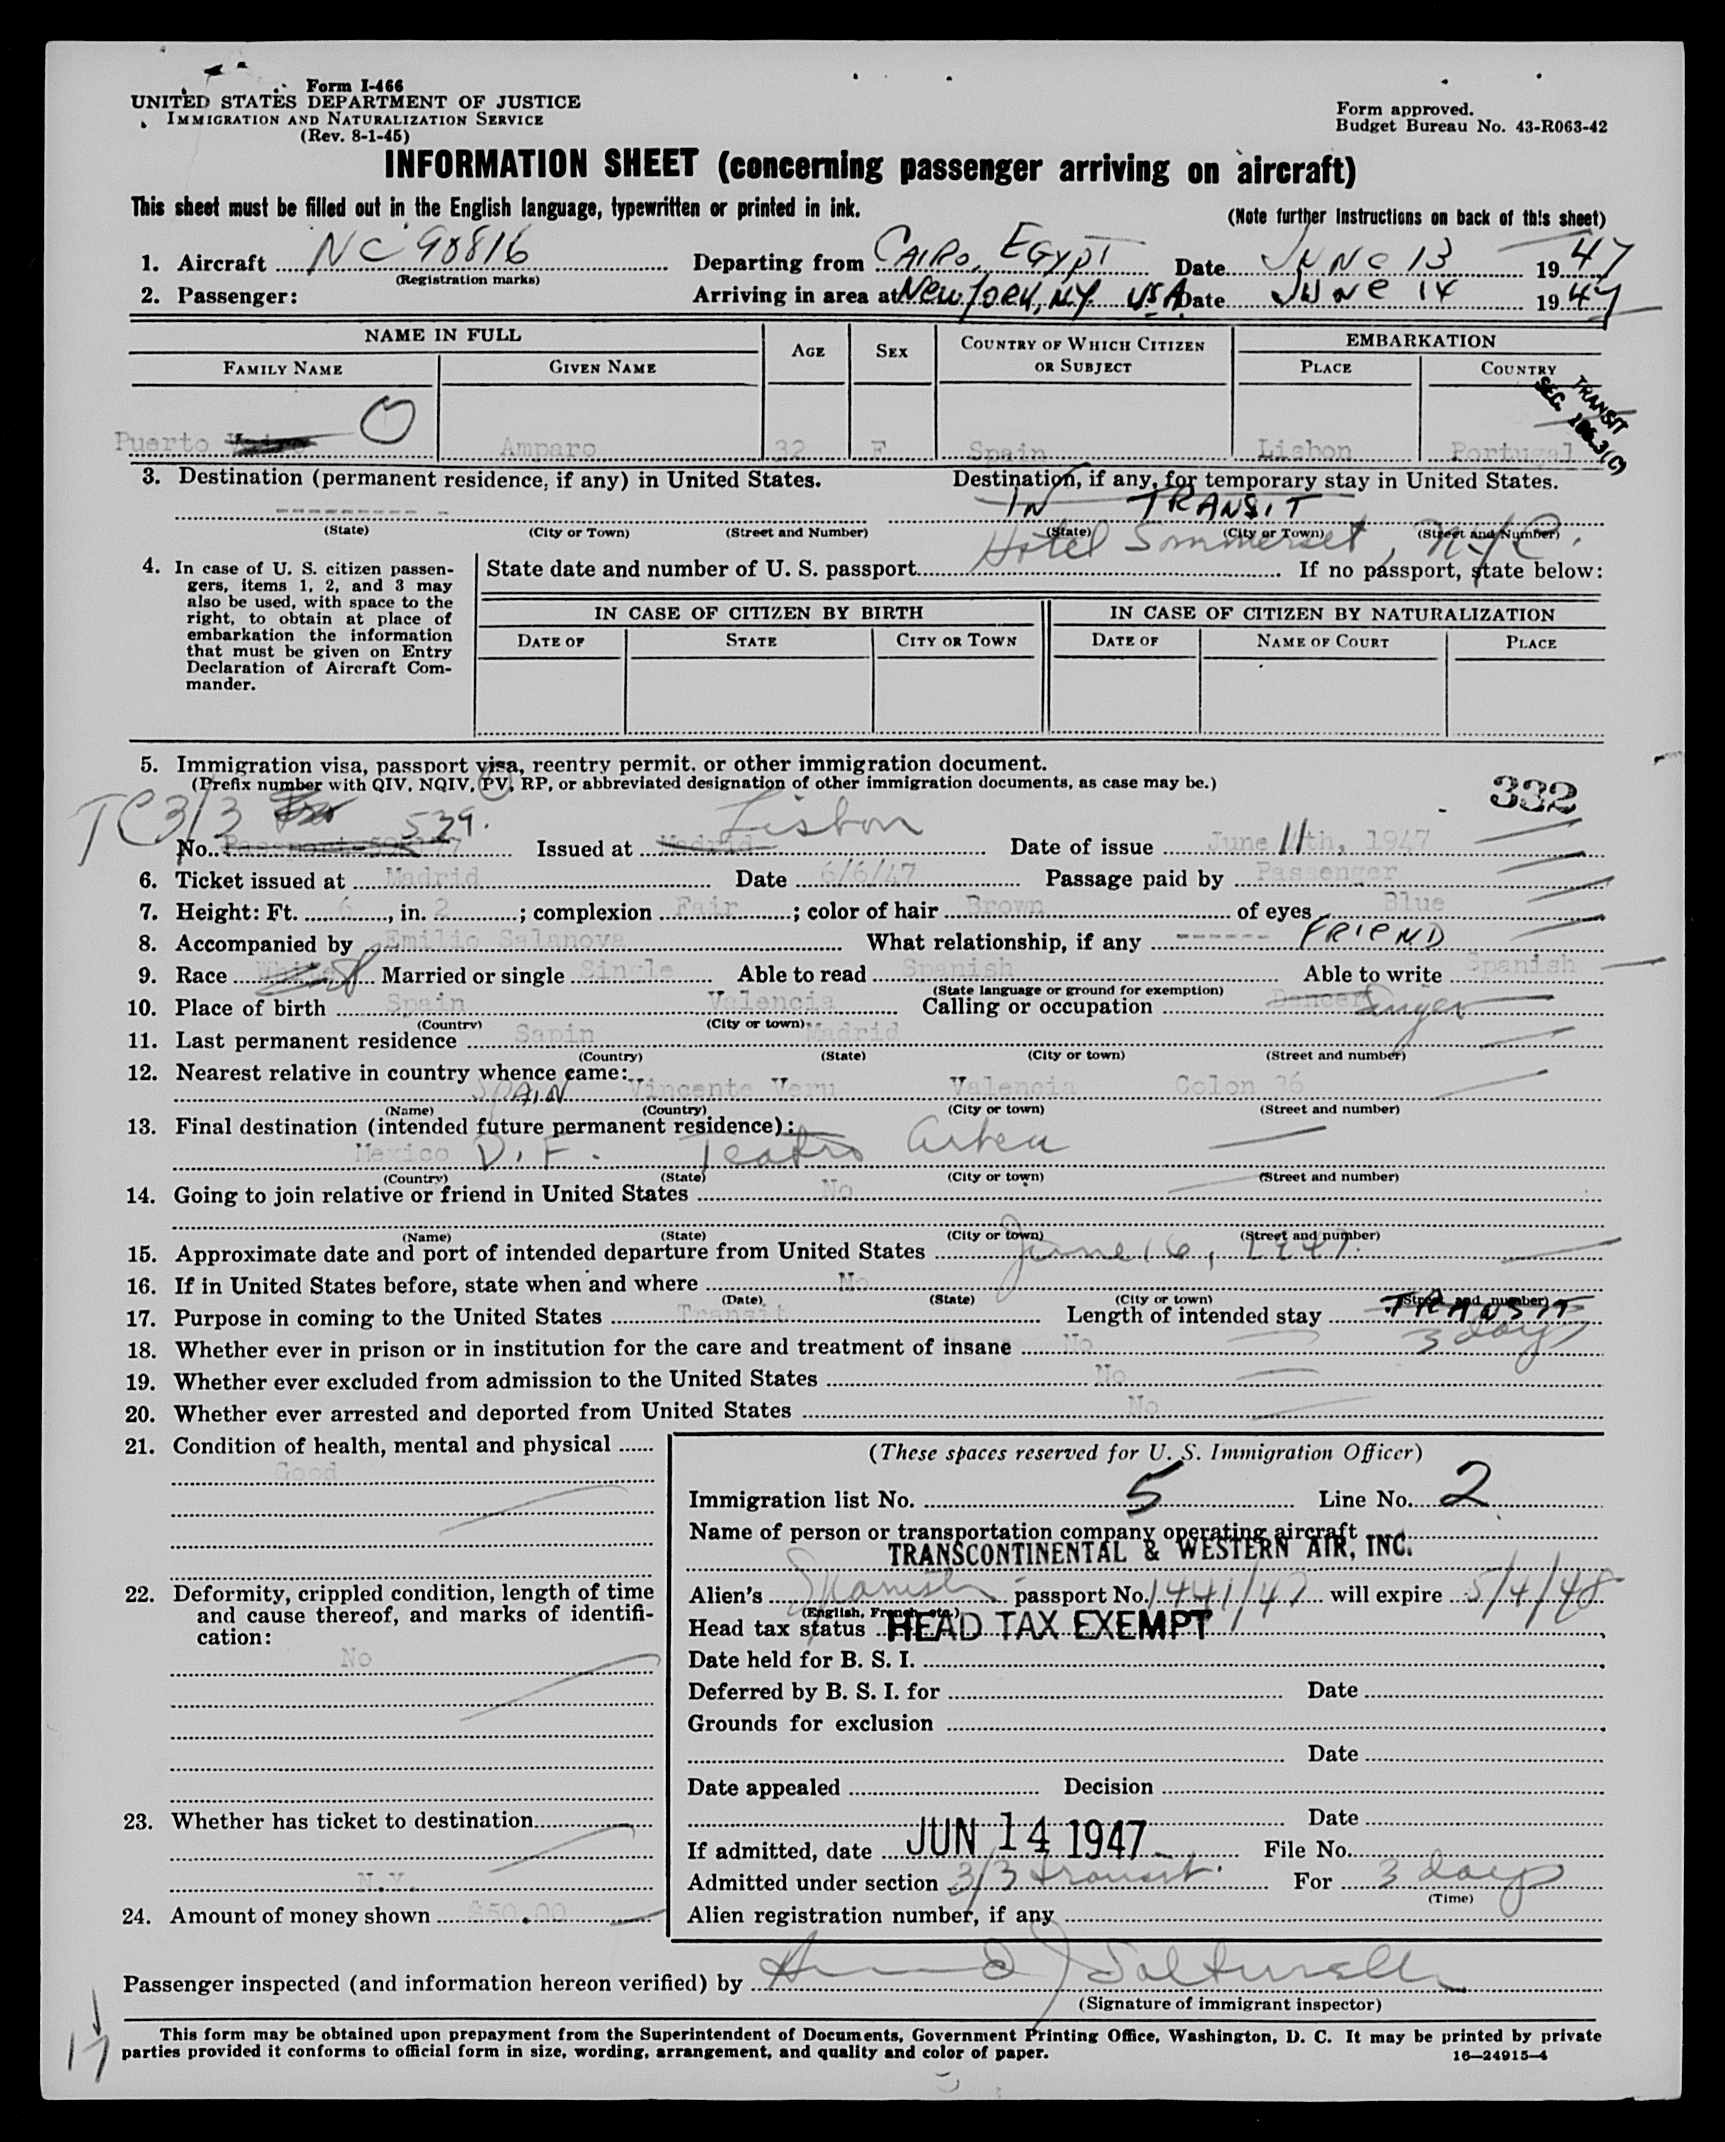 Form I-466
UNITED STATES DEPARTMENT OF JUSTICE
IMMIGRATION AND NATURALIZATION SERVICE
(Rev. 8-1-45)
Form approved.
Budget Bureau No. 43-R063-42
INFORMATION SHEET (concerning passenger arriving on aircraft)
This sheet must be filled out in the English language, typewritten or printed in ink.
(Note further instructions on back of this sheet)
1. Aircraft NC 90816 Departing from CAIRO, EGYPT Date JUNE 13 1947
(Registration marks)
2. Passenger: Arriving in area at NEW YORK, N.Y. USA. Date JUNE 14 1947
NAME IN FULL AGE SEX COUNTRY OF WHICH CITIZEN OR SUBJECT EMBARKATION
FAMILY NAME GIVEN NAME PLACE COUNTRY
TRANSIT
SEC. 3(C)
O
Puerto Amparo 32 F Spain Lisbon Portugal
3. Destination (permanent residence, if any) in United States. Destination, if any, for temporary stay in United States.
IN TRANSIT
(State) (City or Town) (Street and Number) (State) (City or Town) (Street and Number)
Hotel Sommerset, NYC.
4. In case of U. S. citizen passengers, items 1, 2, and 3 may also be used, with space to the right, to obtain at place of embarkation the information that must be given on Entry Declaration of Aircraft Commander.
State date and number of U. S. passport If no passport, state below:
IN CASE OF CITIZEN BY BIRTH IN CASE OF CITIZEN BY NATURALIZATION
DATE OF STATE CITY OR TOWN DATE OF NAME OF COURT PLACE
5. Immigration visa, passport visa, reentry permit, or other immigration document.
(Prefix number with QIV, NQIV, PV, RP, or abbreviated designation of other immigration documents, as case may be.)
332
TC 3/3 539. Lisbon
No. Issued at Madrid Date of issue June 11th, 1947
6. Ticket issued at Madrid Date 6/6/47 Passage paid by Passenger
7. Height: Ft. 6, in. 2; complexion Fair; color of hair Brown of eyes Blue
8. Accompanied by Emilio Salanova What relationship, if any ------ FRIEND
9. Race White Married or single Single Able to read Spanish Able to write Spanish
(State language or ground for exemption)
10. Place of birth Spain Valencia Calling or occupation Dancer Singer
(Country) (City or town)
11. Last permanent residence Sapin Madrid
(Country) (State) (City or town) (Street and number)
12. Nearest relative in country whence came:
SPAIN Vincente Veru Valencia Colon 36
(Name) (Country) (City or town) (Street and number)
13. Final destination (intended future permanent residence):
Mexico D.F. Teatro Arbeu
(Country) (State) (City or town) (Street and number)
14. Going to join relative or friend in United States No
(Name) (State) (City or town) (Street and number)
15. Approximate date and port of intended departure from United States June 16, 1947.
16. If in United States before, state when and where No
(Date) (State) (City or town) (Street and number)
17. Purpose in coming to the United States Transit Length of intended stay TRANSIT
3 days
18. Whether ever in prison or in institution for the care and treatment of insane No
19. Whether ever excluded from admission to the United States No
20. Whether ever arrested and deported from United States No
21. Condition of health, mental and physical
Good
22. Deformity, crippled condition, length of time and cause thereof, and marks of identification:
No
23. Whether has ticket to destination
N.Y.
24. Amount of money shown $50.00
(These spaces reserved for U. S. Immigration Officer)
Immigration list No. 5 Line No. 2
Name of person or transportation company operating aircraft
TRANSCONTINENTAL & WESTERN AIR, INC.
Alien's Spanish passport No. 1441/47 will expire 5/4/48
(English, French, etc.)
Head tax status HEAD TAX EXEMPT
Date held for B. S. I.
Deferred by B. S. I. for Date
Grounds for exclusion
Date
Date appealed Decision
Date
If admitted, date JUN 14 1947 File No.
Admitted under section 3/3 transit. For 3 days
(Time)
Alien registration number, if any
Passenger inspected (and information hereon verified) by
(Signature of immigrant inspector)
17
This form may be obtained upon prepayment from the Superintendent of Documents, Government Printing Office, Washington, D. C. It may be printed by private
parties provided it conforms to official form in size, wording, arrangement, and quality and color of paper.
16—24915-4